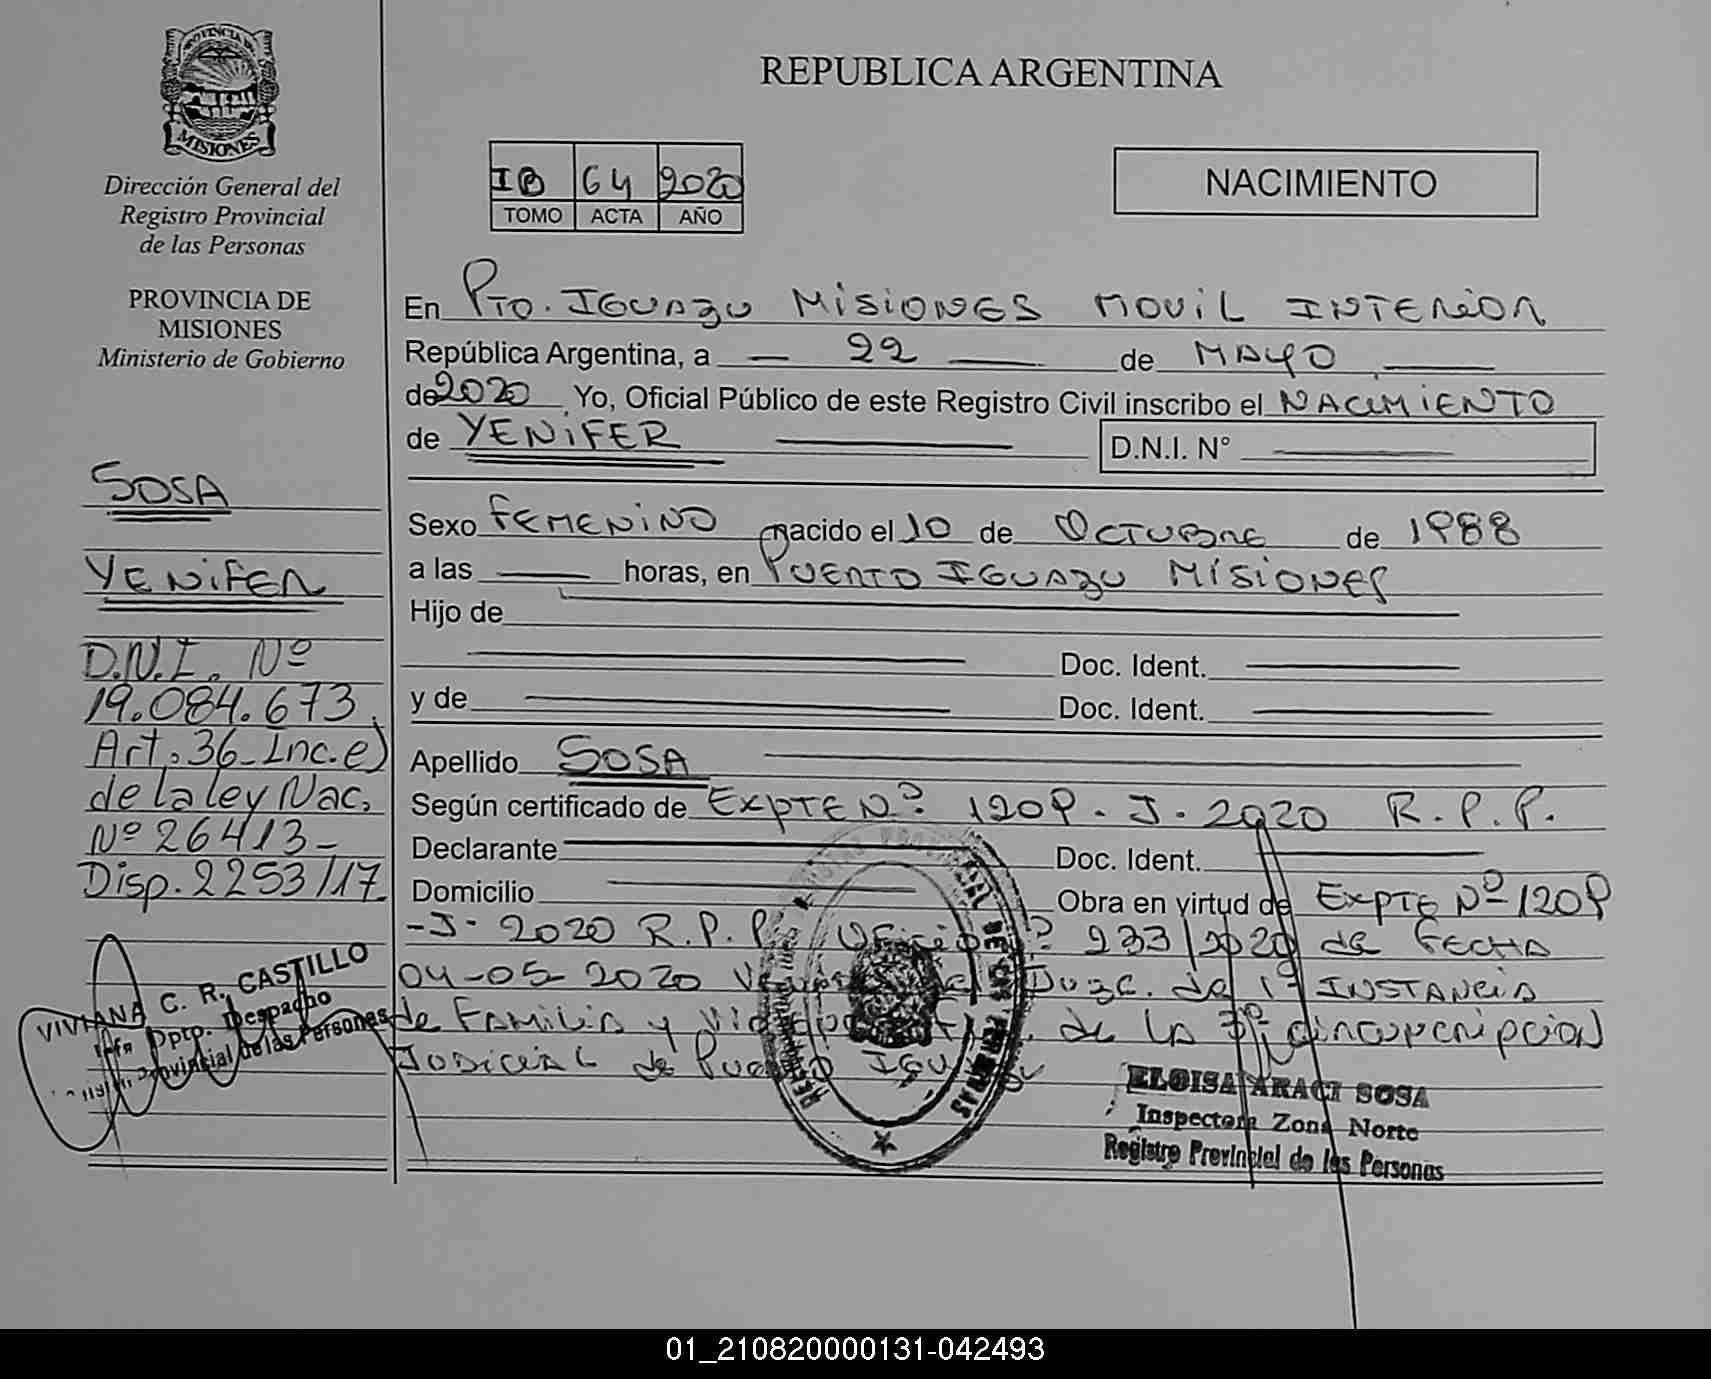 PROVINCIA DE
MISIONES
Dirección General del
Registro Provincial
de las Personas
PROVINCIA DE
MISIONES
Ministerio de Gobierno
SOSA
YENIFER
D.N.I. Nº
19.084.673
Art. 36 - Inc. e)
de la ley Nac.
Nº 26413 -
Disp. 2253/17
VIVIANA C. R. CASTILLO
Dpto. Despacho
Provincial de las Personas
REPUBLICA ARGENTINA
IB 64 2020
TOMO ACTA AÑO
NACIMIENTO
En Pto. IGUAZU MISIONES MOVIL INTERIOR
República Argentina, a 22 de MAYO
de 2020 Yo, Oficial Público de este Registro Civil inscribo el NACIMIENTO
de YENIFER D.N.I. N°
Sexo FEMENINO nacido el 10 de OCTUBRE de 1988
a las horas, en PUERTO IGUAZU MISIONES
Hijo de
Doc. Ident.
y de Doc. Ident.
Apellido SOSA
Según certificado de EXPTE Nº 1209 - J - 2020 R.P.P.
Declarante Doc. Ident.
Domicilio Obra en virtud de EXPTE Nº 1209
-J- 2020 R.P.P. Oficio 233/2020 de FECHA
04-05-2020 Juzg. de 1ª INSTANCIA
de FAMILIA y de la 3ª circunscripcion
JUDICIAL de Puerto IGUAZU
ELOISA ARACI SOSA
Inspectora Zona Norte
Registro Provincial de las Personas
01_210820000131-042493